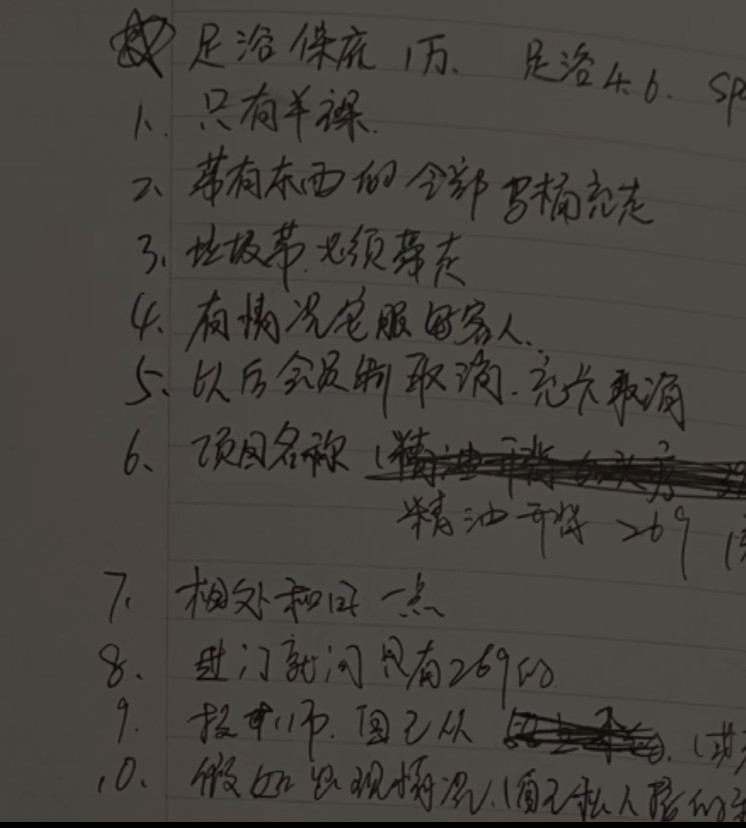 足浴保底1万. 足浴4.6. sp
1. 只有半裸.
2、带有东西的全部马桶冲走
3、垃圾带必须带走
4、有情况宅服留客人、
5、以后会员制取消.充卡取消
6、项目名称
精油开背 269
7、相处和日一点
8、进门就问只有269的
9. 技师.自己从
10. 假如出现情况.(自己私人接的